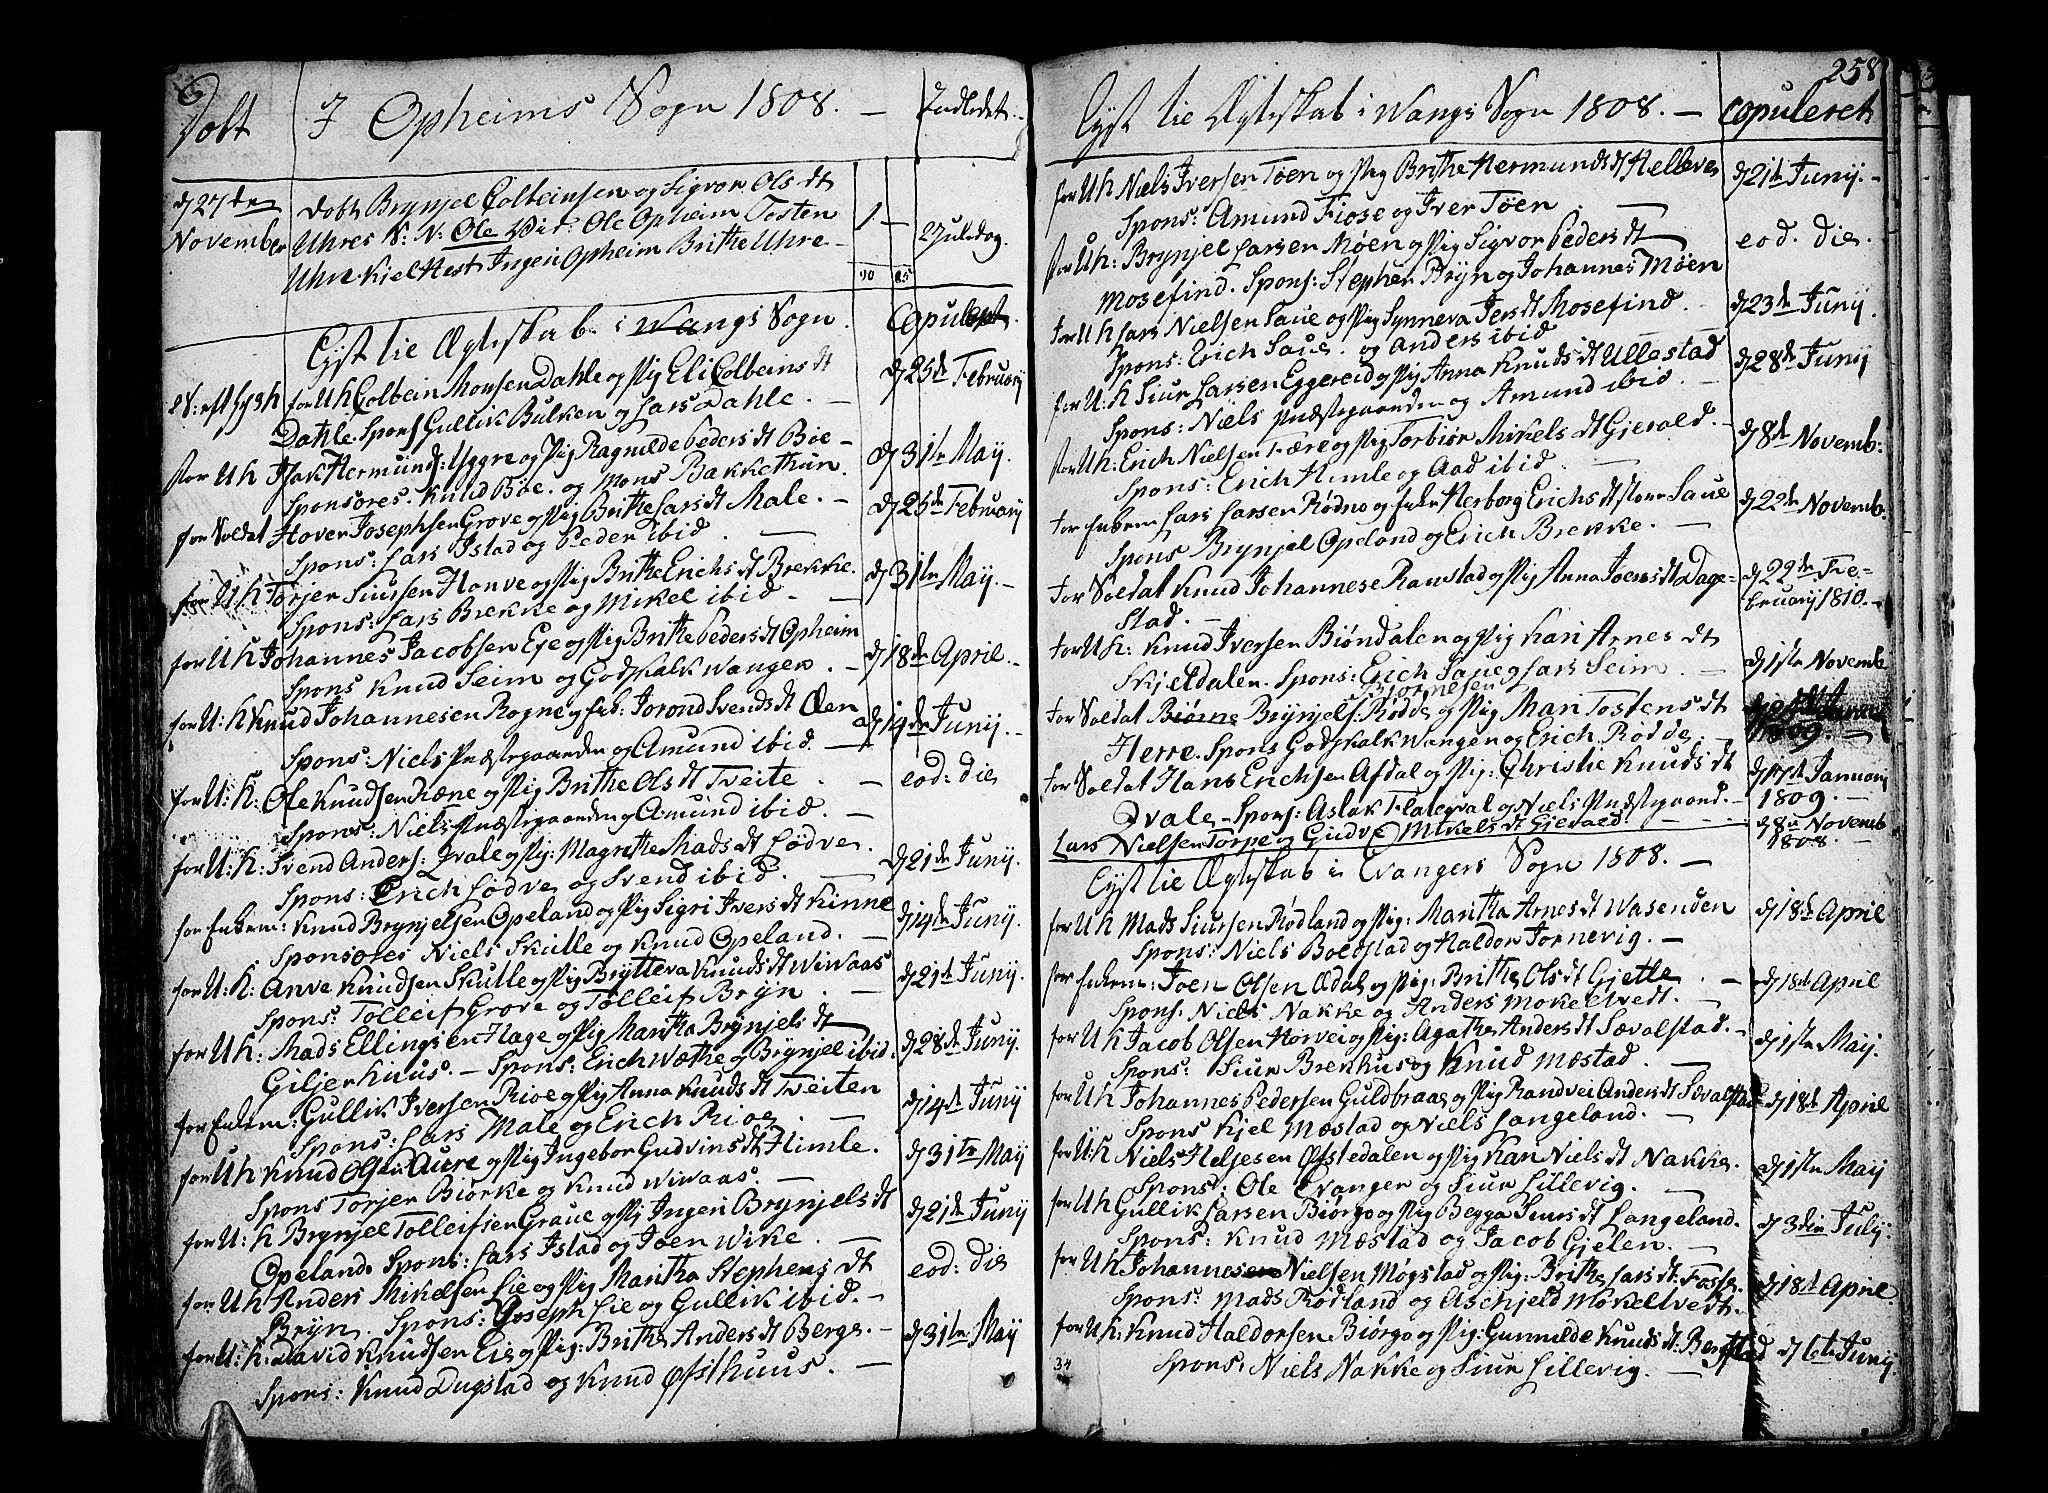 Døbt
I Opheims Sogn 1808. —
Indledet.
d 27de
November
Døbt Brynjel Colbeinsen og Sigvor Ols dt
Uhres S: N: Ole Vit: Ole Opheim Tosten
Uhre Kiel Hest Ingeri Opheim Brithe Uhre —
1 —
2 Juledag.
90 85
Lyst tie Ægteskab i Wangs Sogn
Copuleret.
for U K Colbein Monsen Dahle og Pig Eli Colbeins dt
d 25de February
Dahle. Spons Gullik Bulken og Lars Dahle. —
for U K Isak Hermunds: Yggre og Pig Ragnilde Peders dt Bøe —
d 31te May.
Sponsores. Knud Bøe. og Mons Bakkethun.
for Soldat Hover Josephsen Grove og Pig Brithe Lars dt Male. —
d 25de February
Spons: Lars Istad og Peder ibid. —
for U K Torjer Siursen Honve og Pig Brithe Erichs dt Brekke.
d 31te May. —
Spons: Lars Brekke og Mikel ibid. —
for U K Johannes Jacobsen Eje og Pig Brithe Peders dt Opheim
d 18de April. —
Spons Knud Seim og Godskalk Wangen. —
for U: K Knud Johannesen Rogne og Enk: Jorond Svends dt Øen
d 14de Junij. —
Spons: Niels Præstegaarden og Amund ibid. —
for U: K: Ole Knudsen Ræne og Pig Brithe Ols dt Tveite. —
eod: die
Spons: Niels Præstegaarden og Amund ibid. —
for U: K: Svend Anders: Qvale og Pig: Magrethe Mads dt Lødve.
d 21de Junij.
Spons: Erich Lødve og Svend ibid. —
for Enkem: Knud Brynjelsen Opeland og Pig Sigri Ivers dt Kinne
d 14de Junij.
Sponsores Niels Skulle og Knud Opeland. —
for U: K: Anve Knudsen Skulle og Pig Brytteva Knuds dt Wiwaas
d 21de Junij.
Spons: Tolleif Grove og Tolleif Bryn. —
for U K: Mads Ellingsen Hage og Pig Maritha Brynjels dt
d 28de Junij.
Giljerhuus. — Spons: Erich Wæthe og Brynjel ibid.
for Enkem: Gullik Iversen Rioe og Pig Anna Knuds dt Tveiten
d 14de Junij
Spons: Lars Male og Erich Rioe. —
for U K Knud Olsen Aure og Pig Ingebor Gudvins dt Himle.
d 31te May
Spons Torjer Biørke og Knud Wiwaas. —
for U: K Brynjel Tolleifsen Graue og Pig Ingeri Brynjels dt
d 21de Junij
Opeland. Spons: Lars Istad og Joen Wike. —
for U K Anders Mikelsen Lie og Pig Maritha Stephens dt
eod: die
Bryn. Spons: Joseph Lie og Gullik ibid. —
for U: K: David Knudsen Eie og Pig: Brithe Anders dt Berge. —
d 31te May
Spons: Knud Dugstad og Knud Øfsthuus. —
258
Lyst tie Ægteskab i Wangs Sogn 1808. —
Copuleret
for U K Niels Iversen Tøen og Pig Brithe Hermunds dt Helleve
d 21de Junij. —
Spons: Amund Fiose og Iver Tøen. —
for U K: Brynjel Larsen Møen og Pig Sigvor Peders dt
eod. die.
Mosefind. Spons: Stephen Bryn og Johannes Møen
for U K Lars Nielsen Saue og Pig Synneva Iers dt Mosefind.
d 23de Junij.
Spons: Erich Saue. og Anders ibid
for U: K Siur Larsen Eggereid og Pig Anna Knuds dt Ullestad
d 28de Junij
Spons: Niels Præstegaarden og Amund ibid. —
for U K: Erich Nielsen Tære og Pig Torbiør Mikels dt Gjerald. —
d 8de Novemb:
Spons: Erich Himle og Aad ibid. —
for Enkem Lars Larsen Rødno og Enke Herborg Erichs dt store Saue
d 22de Novemb:
Spons Brynjel Opeland og Erich Brekke. —
for Soldat Knud Johannese Ranstad og Pig Anna Joens dt Dage=
d 22de Fe=
stad. —
bruarij 1810. —
for U K: Knud Iversen Biøndalen og Pig Kari Arnes dt
Skjeldalen. Spons: Erich Saue og Lars Seim. —
d 1ste Novemb
Biørnesen
for Soldat Biørne Brynjels: Rødde og Pig Mari Tostens dt
1809. —
Herre. Spons Godskalk Wangen og Erich Rødde. —
for Soldat Hans Erichsen Afdal og Pig: Christie Knuds dt
d 17de Januarij
Qvale — Spons: Aslak Flateqval og Niels Præstegaard. —
1809. —
Lars Nielsen Torpe og Gudve Mikels dt Gjerald —
d 8de Novemb
1808. —
Lyst tie Ægteskab i Evangers Sogn 1808. —
for U K Mads Siursen Rødland og Pig: Maritha Arnes dt Wasenden
d 18de April
Spons: Niels Boldstad og Haldor Jornevig. —
for Enkem: Joen Olsen Ædal og Pig: Brithe Ols dt Gjelle. —
d 18de April
Spons. Niels Nakke og Anders Mokeltvedt. —
for U K Jacob Olsen Horvei og Pig: Agathe Anders dt Sævalstad. —
d 1ste Maij.
Spons: Siur Brekhus og Knud Mæstad. —
for U K Johannes Pedersen Guldbraae og Pig Randvei Anders dt Sævalstad
d 18de April
Spons Kjel Mæstad og Niels Langeland. —
for U: K Niels Heljesen Øfstedalen og Pig Kari Niels dt Nakke.
d 1ste Maij
Spons: Ole Evanger og Siur Lillevig. —
for U K Gullik Larsen Biørgo og Pig Begga Siurs dt Langeland.
d 3die Julij.
Spons: Knud Mæstad og Jacob Gjelen. —
for U K Johannes Nielsen Møgstad og Pig: Brithe Lars dt Fosse.
d 18de April.
Spons: Mads Rødland og Aschjeld Mokeltvedt.
for U K: Knud Haldorsen Biørgo og Pig: Gunnilde Knuds dt: Bergstad
d 6te Junij
34
Spons: Niels Nakke og Siur Lillevig. —